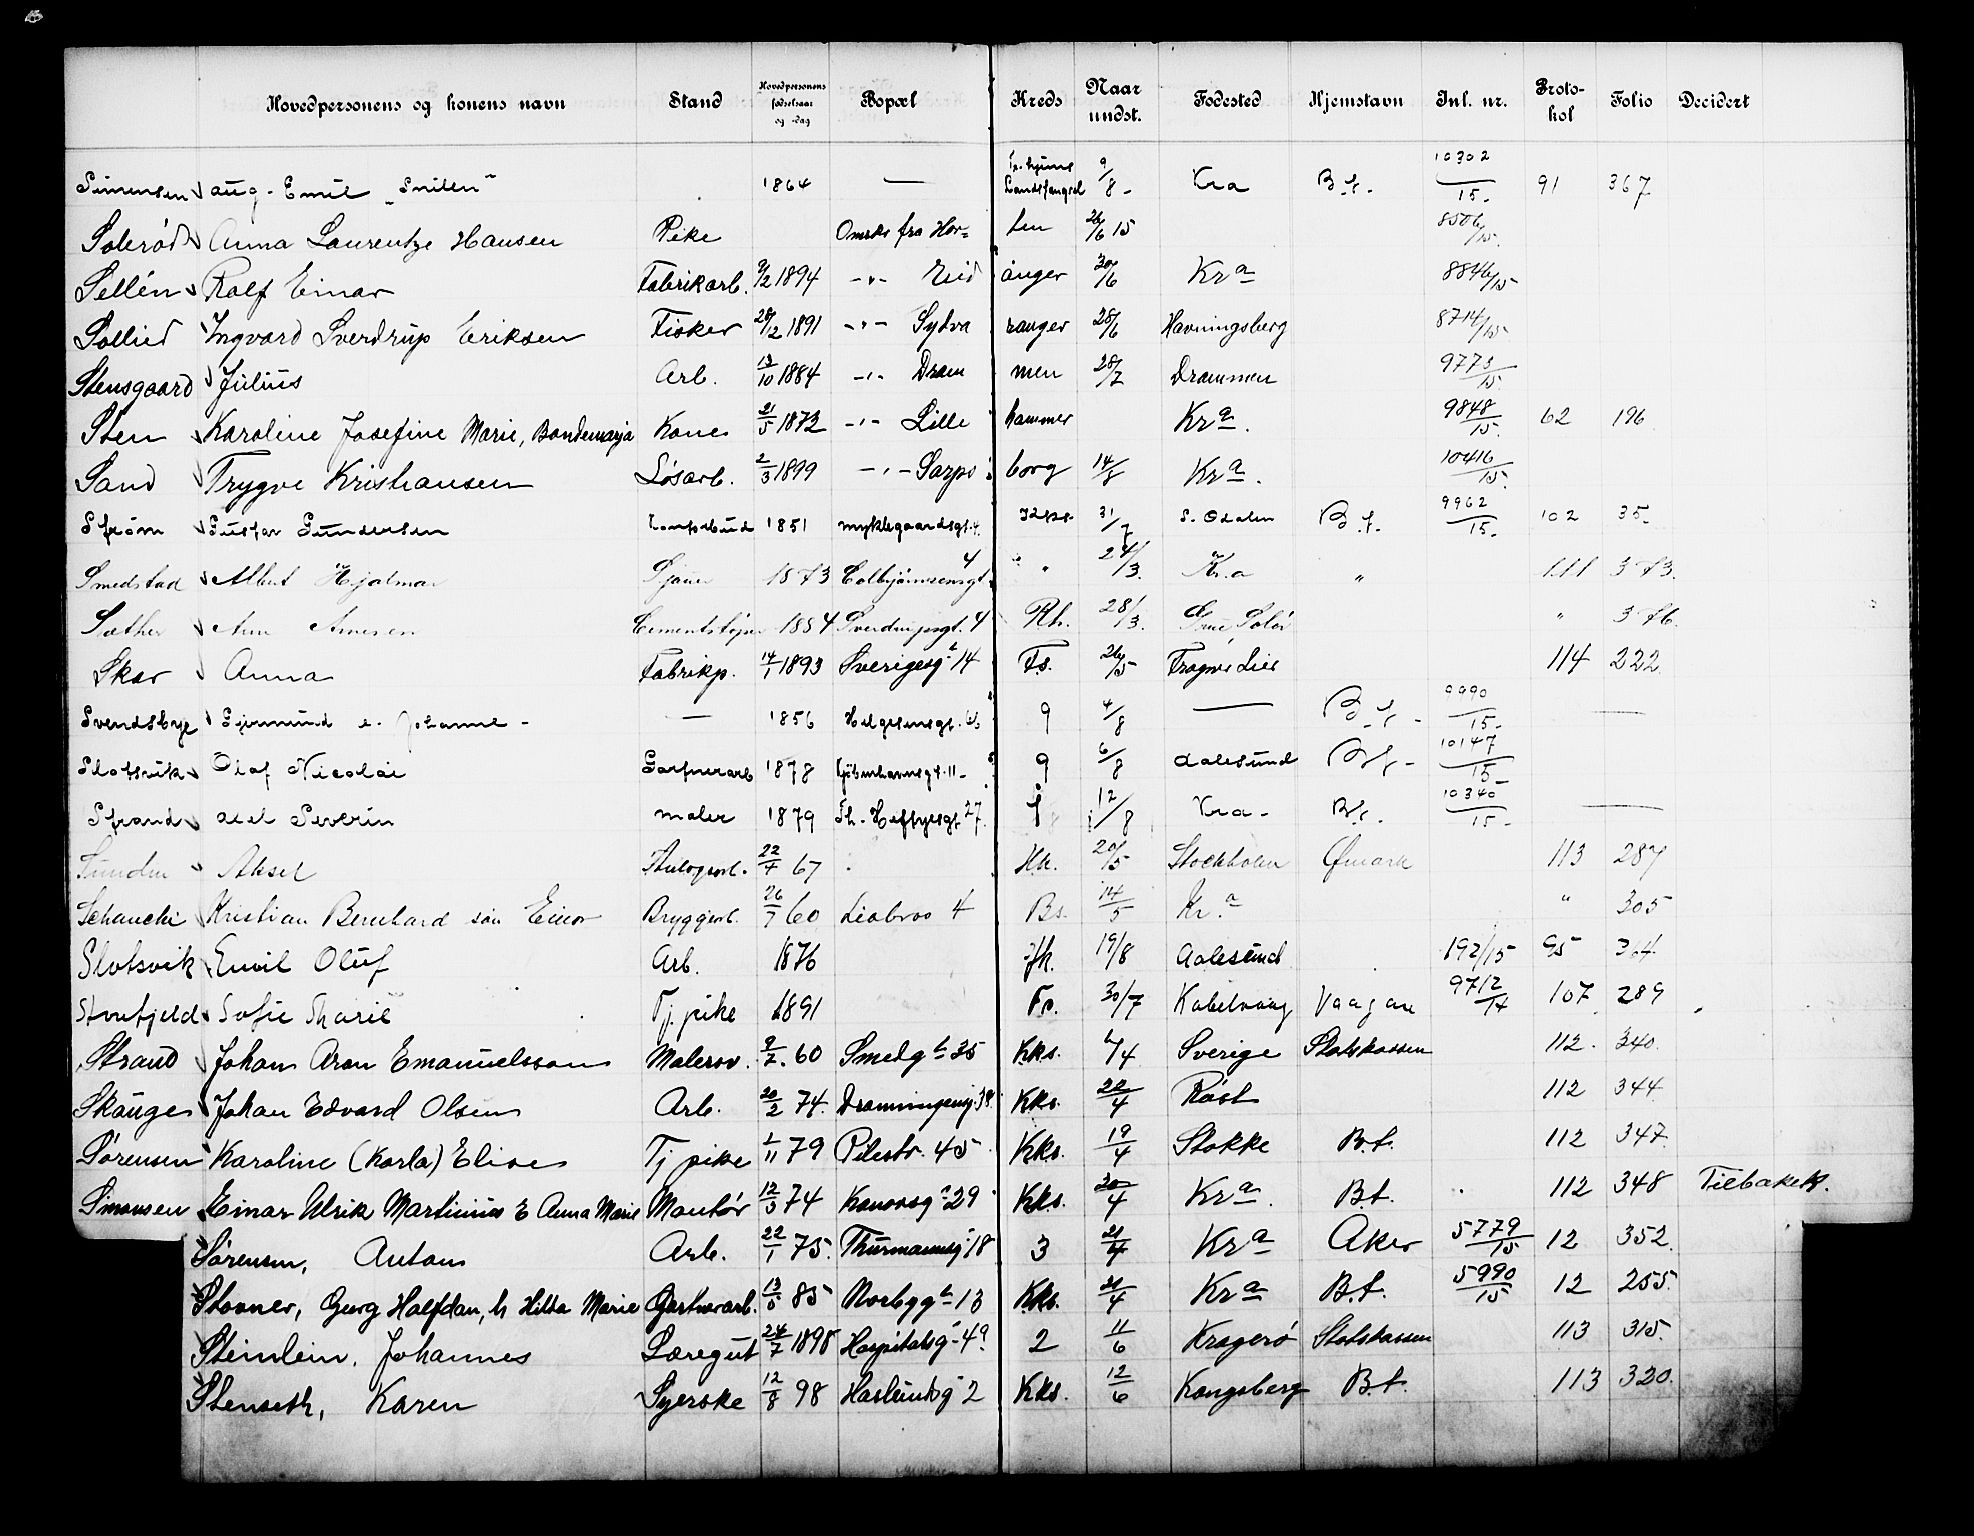 Hovedpersonens og konens navn Stand Hovedpersonens fødselsaar og -dag Bopæl Kreds Naar undst. Fødested Hjemstavn Inl. nr. Proto-kol Folio Decidert
Simensen Aug. Emil „Sniten“ 1864 — Landsfængsel 9/8 - Kra B.f. 10302/15 91 367
Solerød Anna Laurentze Hansen Pike Omsks fra Hor= ten 26/6 15 8506/15
Sellén Rolf Einar Fabrikarb. 9/2 1894 -"- Eid anger 30/6 Kra 8846/15
Sollied Ingvard Sverdrup Eriksen Fisker 28/2 1891 -"- Sydva ranger 28/6 Havningsberg 8714/15
Stensgaard Julius Arb. 13/10 1884 -"- Dram men 28/7 Drammen 9773/15
Sten Karoline Josefine Marie, Bondemarja Kone 21/5 1872 -"- Lille hammer Kra. 9848/15 62 196
Sand Trygve Kristiansen Løsarb. 2/3 1899 -"- Sarps borg 14/8 Kra. 10416/15
Strøm Gustav Gundersen 1851 Myklegaardsgt. 4 31/7 S. Odalen B.f. 9962/15 102 35
Smedstad Albert Hjalmar Sjauer 1873 Colbjørnsensgt. 4 " 24/3 Kr.a " 111 373
Sæther Arne Arnesen Cementstøper 1884 Sverdrupsgt. 4 Rh. 28/3 Grue Solør " 376.
Skar Anna Fabrikp. 14/1 1893 Sverigesgt 14 Fs. 26/5 Frogner Lier 114 222
Svendsbye Gjermund e. Johanne - — 1856 Helgesensgt. 9 4/8 — B.f. - 9990/15 —
Slotsvik Olaf Nicolai Gartnerarb 1878 Kjøbenhavnsgt. 11 - 9 6/8 Aalesund B.f. - 10147/15
Strand Axel Severin Maler 1879 Th. Heftyesgt. 27. 12/8 Kra - B.f. 10340/15 —
Sundin Aksel 22/4 67 Hk. 20/5 Stockholm Ømark 113 287
Schanche Kristian Bernhard søn Einar Bryggerb. 26/7 60 Liabroo 4 Bs. 14/5 Kr.a " 305
Slotsvik Emil Oluf Arb. 1876 19/8 Aalesund 192/15 95
Storfjeld Sofie Marie Tj. pike 1891 Fr. 30/7 Kabelvaag Vaagan 9712/14 107 289
Strand Johan Aron Emanuelsson Malersv. 9/2. 60 Smedgt 35 Kks. 6/4 Sverige Statskassen 112. 340.
Skauge Johan Edvard Olsen Arb. 20/2 74. Dronningensg. 38 Kks. 22/4 Røst 112 344
Sørensen Karoline (Karla) Elise Tj pike 1/11 79 Pilestr. 45 Kks. 19/4 Stokke B.f. 112 347
Simonsen Einar Ulrik Martinius E Anna Marie Montør 12/3 74 Kanonsgt 29 Kks. 20/4 Kra. B.f. 112 348 Tilbakek.
Sørensen, Anton Arb. 22/1 75. Thurmannsg. 18 3 21/4 Kra Aker 5779/15 12 352
Stovner, Georg Halfdan, h Hilda Marie Gartnerarb. 13/5 85 Norbygt 13 Kks. 21/4 Kra B.f. 5990/15 12 255.
Steinlein, Johannes Læregut 24/7 1898 Hospitalsg. 49. 2 11/6 Kragerø Statskassen 113 315.
Stenseth, Karen Syerske 12/8 98 Haslundsg 2 Kks. 12/6 Kongsberg B.f. 113 320.